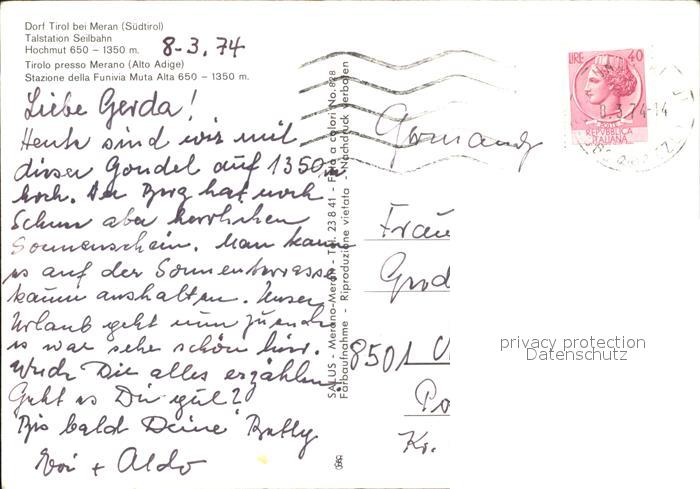 Dorf Tirol bei Meran (Südtirol)
Talstation Seilbahn
Hochmut 650 – 1350 m.
Tirolo presso Merano (Alto Adige)
Stazione della Funivia Muta Alta 650 – 1350 m.
8-3.74
Liebe Gerda!
Heute sind wir mit
dieser Gondel auf 1350 m
hoch. Der Berg hat noch
Schnee aber herrlichen
Sonnenschein. Man kann
es auf der Sonnenterrasse
kaum aushalten. Unser
Urlaub geht nun zu ende
es war sehr schön hier.
Werde Dir alles erzählen!
Geht es Dir gut?
Bis bald Deine Betty
Evi + Aldo
SALUS - Merano-Meran - Tel. 23841 - Foto a colori No. 828
Farbaufnahme - Riproduzione vietata - Nachdruck verboten
LIRE 40
POSTE
REPVBBLICA
ITALIANA
.3.74-14
Germany
Frau
Grod
8501
Po
Kr.
privacy protection
Datenschutz